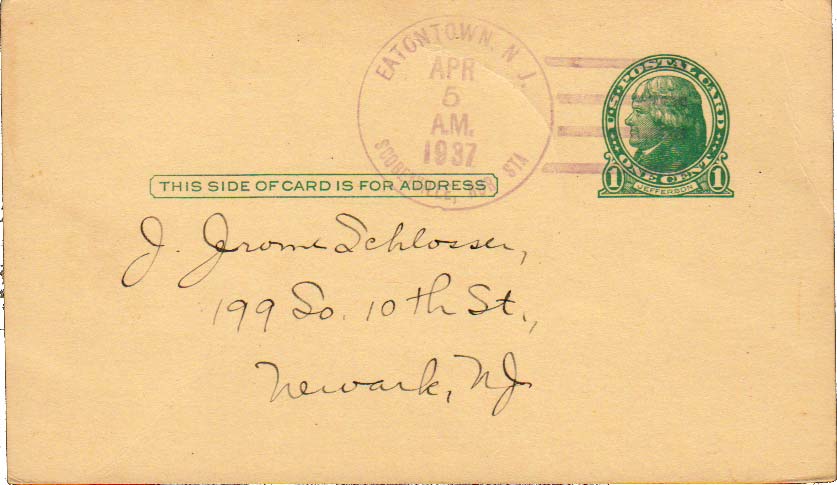 EATONTOWN, N J.
APR
5
A.M.
1937
SCOBEYVILLE, RUR STA
U.S. POSTAL CARD
ONE CENT
1 JEFFERSON 1
THIS SIDE OF CARD IS FOR ADDRESS
J. Jerome Schlosser,
199 So. 10th St.,
Newark, NJ